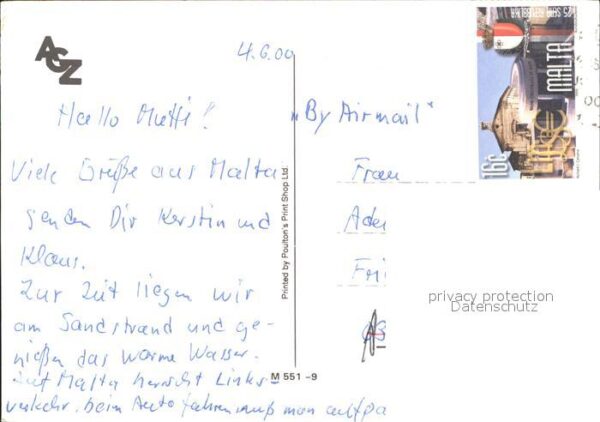 AGZ
4.6.00
Hallo Mutti!
Viele Grüße aus Malta
senden Dir Kerstin und
Klaus.
Zur Zeit liegen wir
am Sandstrand und ge-
nießen das warme Wasser.
Auf Malta herrscht Links-
verkehr, beim Autofahren muß man aufpa
Printed by Poulton's Print Shop Ltd.
M 551 -9
"By Airmail"
Frau
Ade
Fri
MALTA
16c
privacy protection
Datenschutz